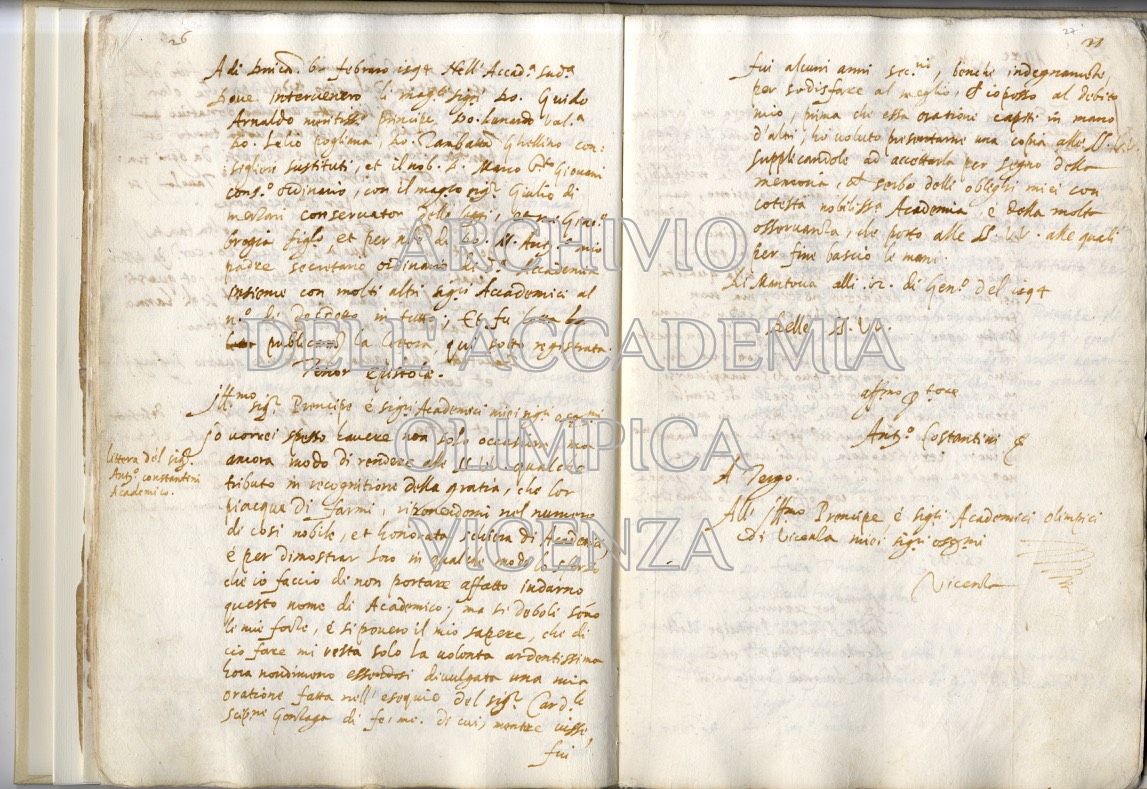 26
Adi Dnica. 6 febraro 1594 Nell'Accad.a sud.a
Dove intervenero li mag.ci sig.ri Do. Guido
Arnaldo meritiss.o Principe, Do. Lunardo Val.a
Do. Lelio Poglima, Do. Gio: batta Ghellino con:
siglieri sustituti, et il nob. D. Marco Giovani
cons.o ordinario, con il mag.co sig.r Giulio di
merzari conservator delle leggi,
brogia et per me di Do. Ant.o mio
padre secretario ordinario di d.a Academia
insieme con molti altri sig.ri Accademici al
n.o di dodotto in tutto; Et fu
publicare la littera, qui sotto registrata.
Tenor Epistolę.
Ill.mo sig.r Principe é sig.ri Academici miei sig.ri oss.mi
Io vorrei spesso havere non solo occasione, ma
ancora modo di rendere alle SS. VV. qualche
tributo in recognitione della gratia, che lor
piacque di farmi, riponendomi nel numero
di cosi nobile, et honorata schiera di Academici,
é per dimostrar loro in qualche modo lo sforzo
che io faccio di non portare affatto indarno
questo nome di Academico; ma si deboli sono
le mie forze, é si povero il mio sapere, che di
cio fare mi resta solo la volonta ardentissima
hora nondimeno essendosi divulgata una mia
oratione fatta nell'esequie del sig.r Card.le
Scipione Gonzaga di fe: me. di cui, mentre visse,
fui
littera del sig.r
Ant.o constantini
Academico.
27
fui alcuni anni sec.rio, benche indegnamente,
per sodisfare al meglio, ch'io posso al debito
mio, prima che essa oratione capiti in mano
d'altri, hó voluto presentarne una copia alle SS. VV.
supplicandole ad accettarla per segno della
memoria, ch'io serbo delli oblighi miei con
cotesta nobiliss.a Academia é della molta
osservanza, che porto alle SS. VV. alle quali
per fine bascio le mani.
Di Mantova alli .12. di Gen.o del 1594
Delle SS. VV.
aff.mo
Ant.o Costantini
A Tergo.
Alli Ill.mo Prencipe é sig.ri Academici olimpici
di Vicenza miei sig.ri oss.mi
Vicenza
ARCHIVIO
DELL'ACCADEMIA
OLIMPICA
VICENZA